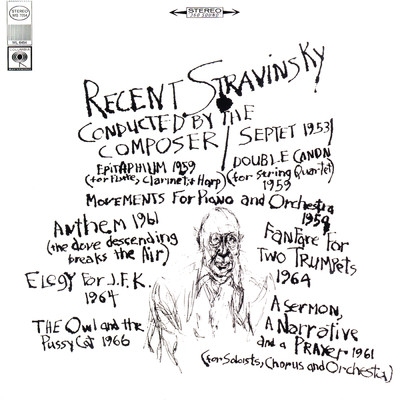 STEREO
360 SOUND
STEREO
COLUMBIA
RECENT STRAVINSKY
CONDUCTED BY THE
COMPOSER
SEPTET 1953
EPITAPHIUM 1959
(for Flute, Clarinet & Harp)
DOUBLE CANON
(for String Quartet)
1959
MOVEMENTS For Piano and Orchestra
1959
Anthem 1961
(the dove descending
breaks the Air)
Fanfare for
Two Trumpets
1964
ELEGY For J.F.K.
1964
THE Owl and the
PussyCat 1966
A SERMON,
A Narrative
and a PRAYER 1961
(for Soloists, Chorus and Orchestra)